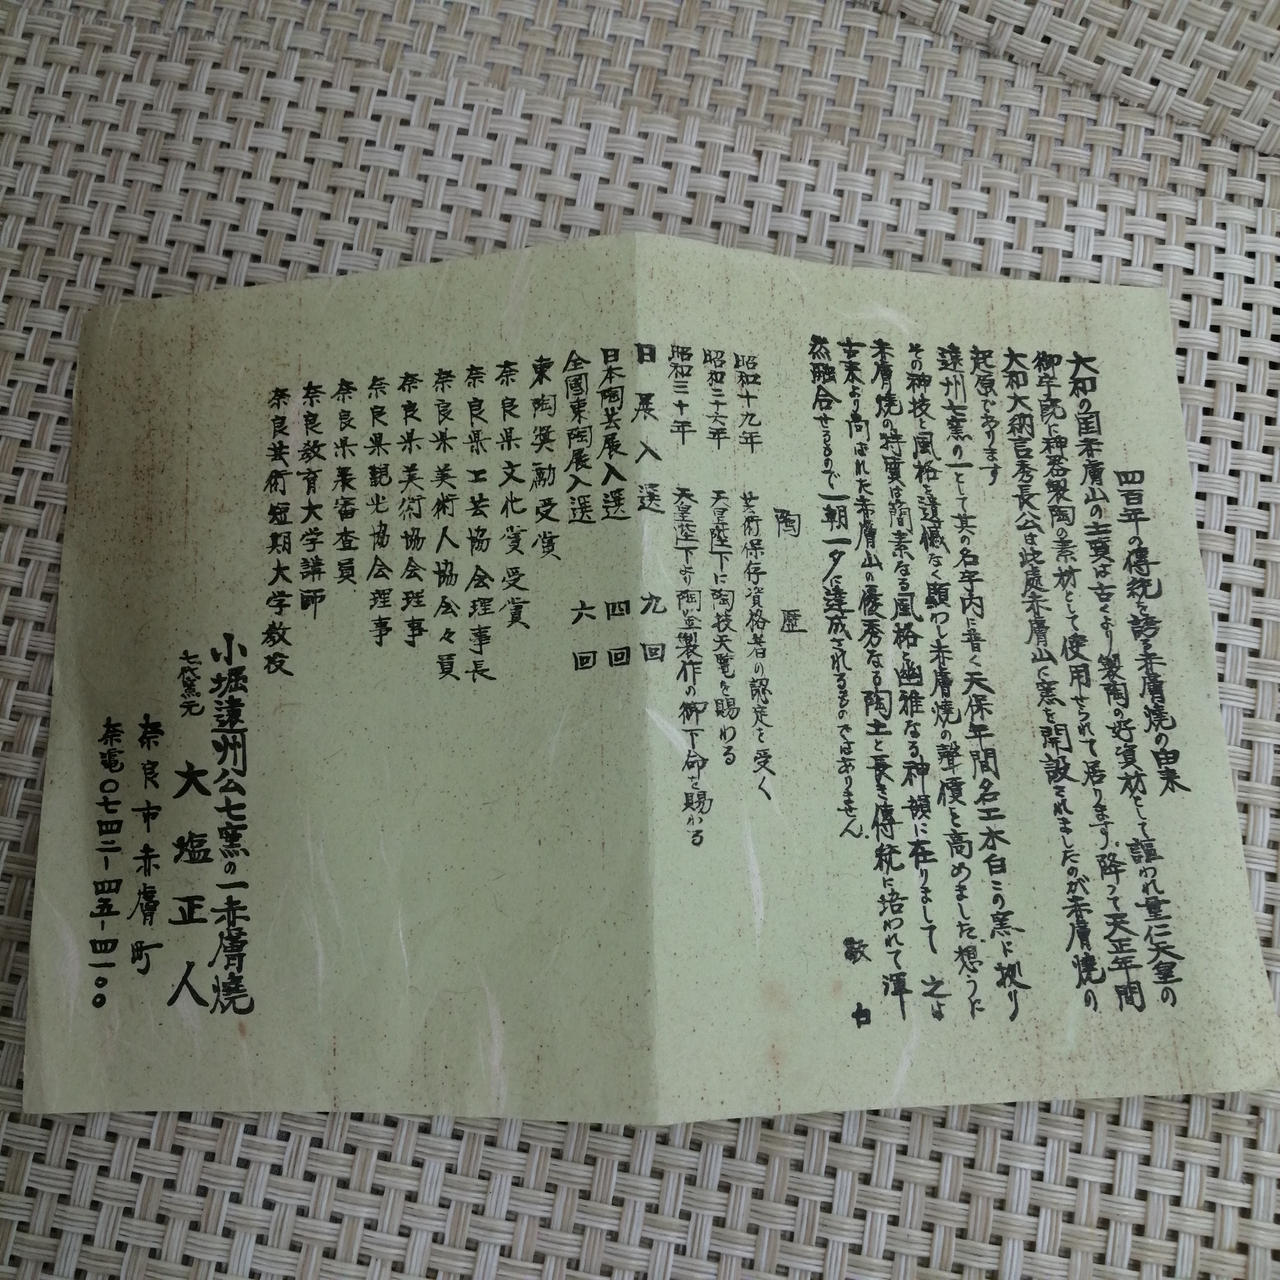 四百年の傳統を誇る赤膚焼の由来
大和の国赤膚山の土質は古くより製陶の好資材として謳われ垂仁天皇の
御宇既に神器製陶の素材として使用せられて居ります。降って天正年間
大和大納言秀長公は此處赤膚山に窯を開設されましたのが赤膚焼の
起原であります
遠州七窯の一として其の名宇内に普く天保年間名工木白この窯に拠り
その神技と風格を遺憾なく顕わし赤膚焼の聲價を高めました。想うに
赤膚焼の特質は簡素なる風格と幽雅なる神韻に在りまして之は
古来より尚ばれた赤膚山の優秀なる陶土と長き傳統に培われて渾
然融合せるもので一朝一夕に達成されるものではありません。
敬白
陶歴
昭和十九年 芸術保存資格者の認定を受く
昭和二十六年 天皇陛下に陶技天覧を賜わる
昭和三十年 天皇陛下より陶芸製作の御下命を賜わる
日展入選 九回
日本陶芸展入選 四回
全國東陶展入選 六回
東陶奨勵受賞
奈良県文化賞受賞
奈良県工芸協会理事長
奈良県美術人協会々員
奈良県美術協会理事
奈良県観光協会理事
奈良県展審査員
奈良教育大学講師
奈良芸術短期大学教授
小堀遠州公七窯の一赤膚焼
七代窯元 大塩正人
奈良市赤膚町
奈電〇七四二-四五-四一〇〇